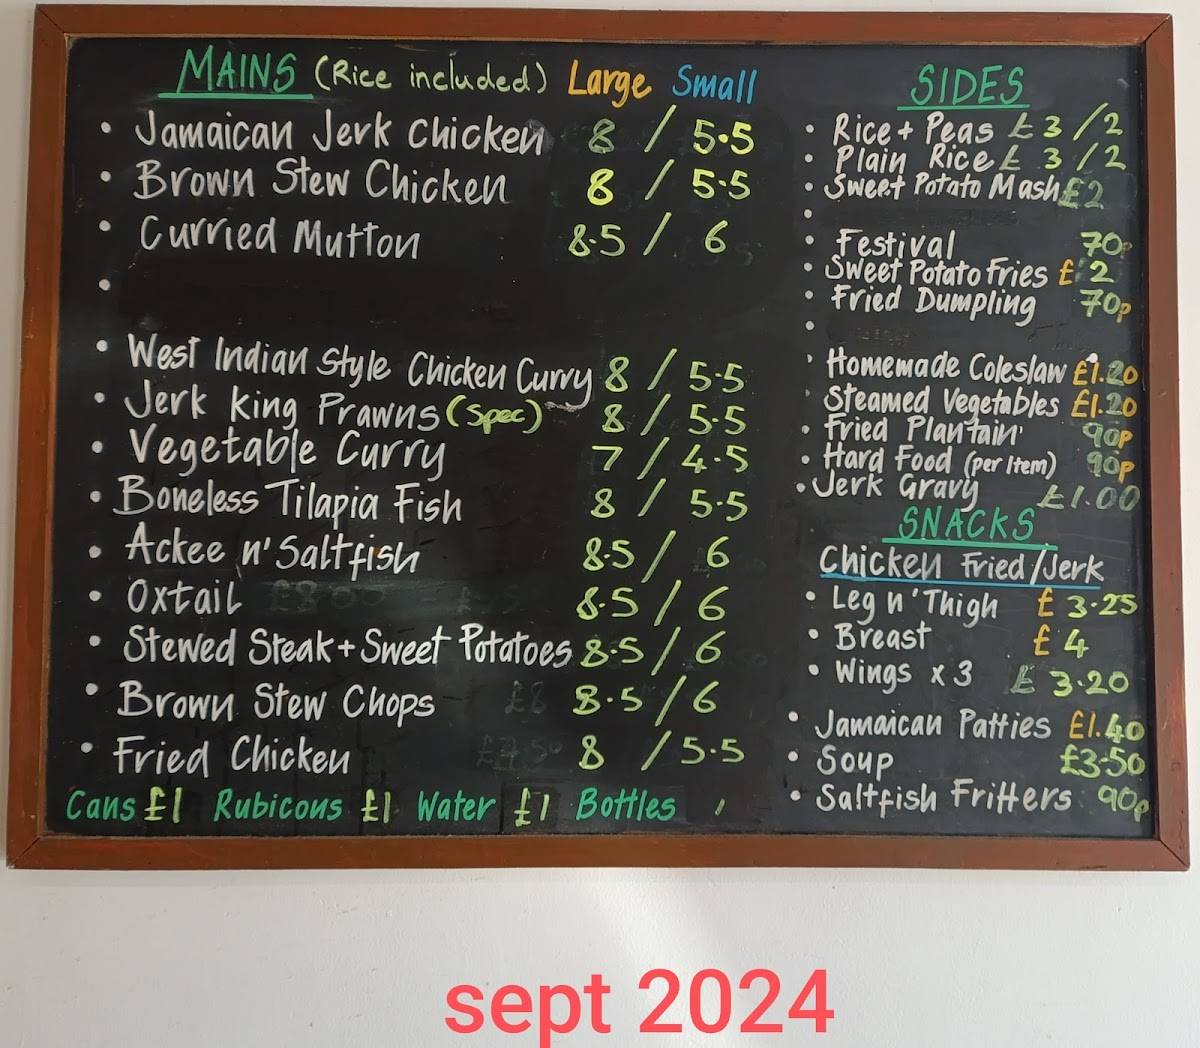 MAINS (Rice included) Large Small
• Jamaican Jerk Chicken 8 / 5.5
• Brown Stew Chicken 8 / 5.5
• Curried Mutton 8.5 / 6
•
• West Indian Style Chicken Curry 8 / 5.5
• Jerk King Prawns (Spec) 8 / 5.5
• Vegetable Curry 7 / 4.5
• Boneless Tilapia Fish 8 / 5.5
• Ackee n' Saltfish 8.5 / 6
• Oxtail 8.5 / 6
• Stewed Steak + Sweet Potatoes 8.5 / 6
• Brown Stew Chops 8.5 / 6
• Fried Chicken 8 / 5.5
Cans £1 Rubicons £1 Water £1 Bottles
SIDES
• Rice + Peas £3/2
• Plain Rice £3/2
• Sweet Potato Mash £2
•
• Festival 70p
• Sweet Potato Fries £2
• Fried Dumpling 70p
•
• Homemade Coleslaw £1.20
• Steamed Vegetables £1.20
• Fried Plantain' 90p
• Hard Food (per Item) 90p
• Jerk Gravy £1.00
SNACKS
Chicken Fried/Jerk
• Leg n' Thigh £3.25
• Breast £4
• Wings x 3 £3.20
• Jamaican Patties £1.40
• Soup £3.50
• Saltfish Fritters 90p
sept 2024